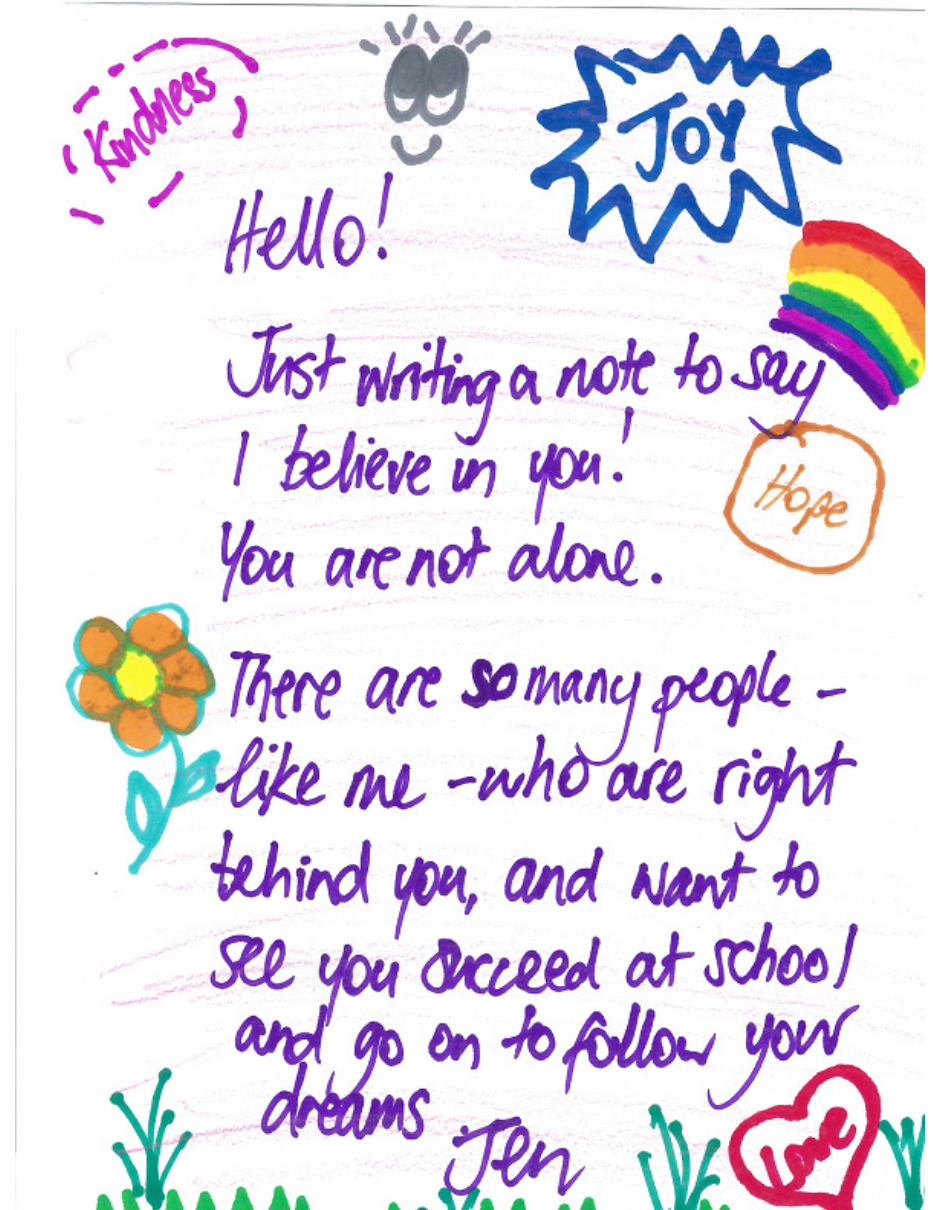 Kindness
JOY
Hello!
Just writing a note to say
I believe in you!
Hope
You are not alone.
There are so many people -
like me - who are right
behind you, and want to
see you succeed at school
and go on to follow your
dreams
Jen
Love